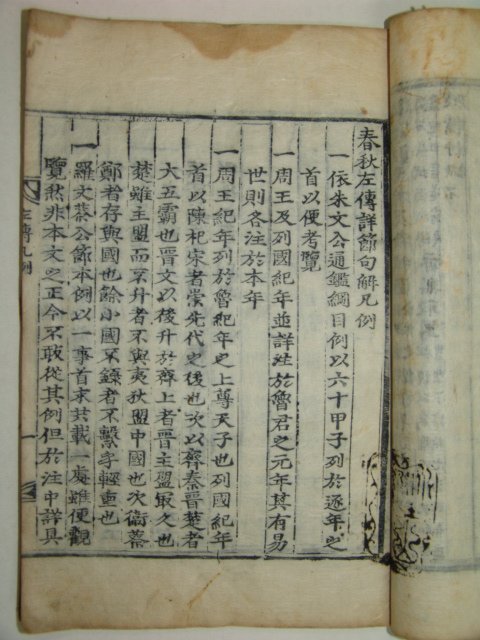 春秋左傳詳節句解凡例
一依朱文公通鑑綱目例以六十甲子列於逐年之
首以便考覽
一周王及列國紀年並詳註於魯君之元年其有易
世則各注於本年
一周王紀年列於魯紀年之上尊天子也列國紀年
首以陳杞宋者崇先代之後也次以齊秦晉楚者
大五霸也晉文以後升於齊上者晉主盟最久也
楚雖主盟而不升者不與夷狄盟中國也次衛蔡
鄭者存與國也餘小國不錄者不繫字輕重也
一羅文恭公節本例以一事首末幷載一處雖便觀
覽然非本文之正今不敢從其例但於注中詳具
左傳凡例
一